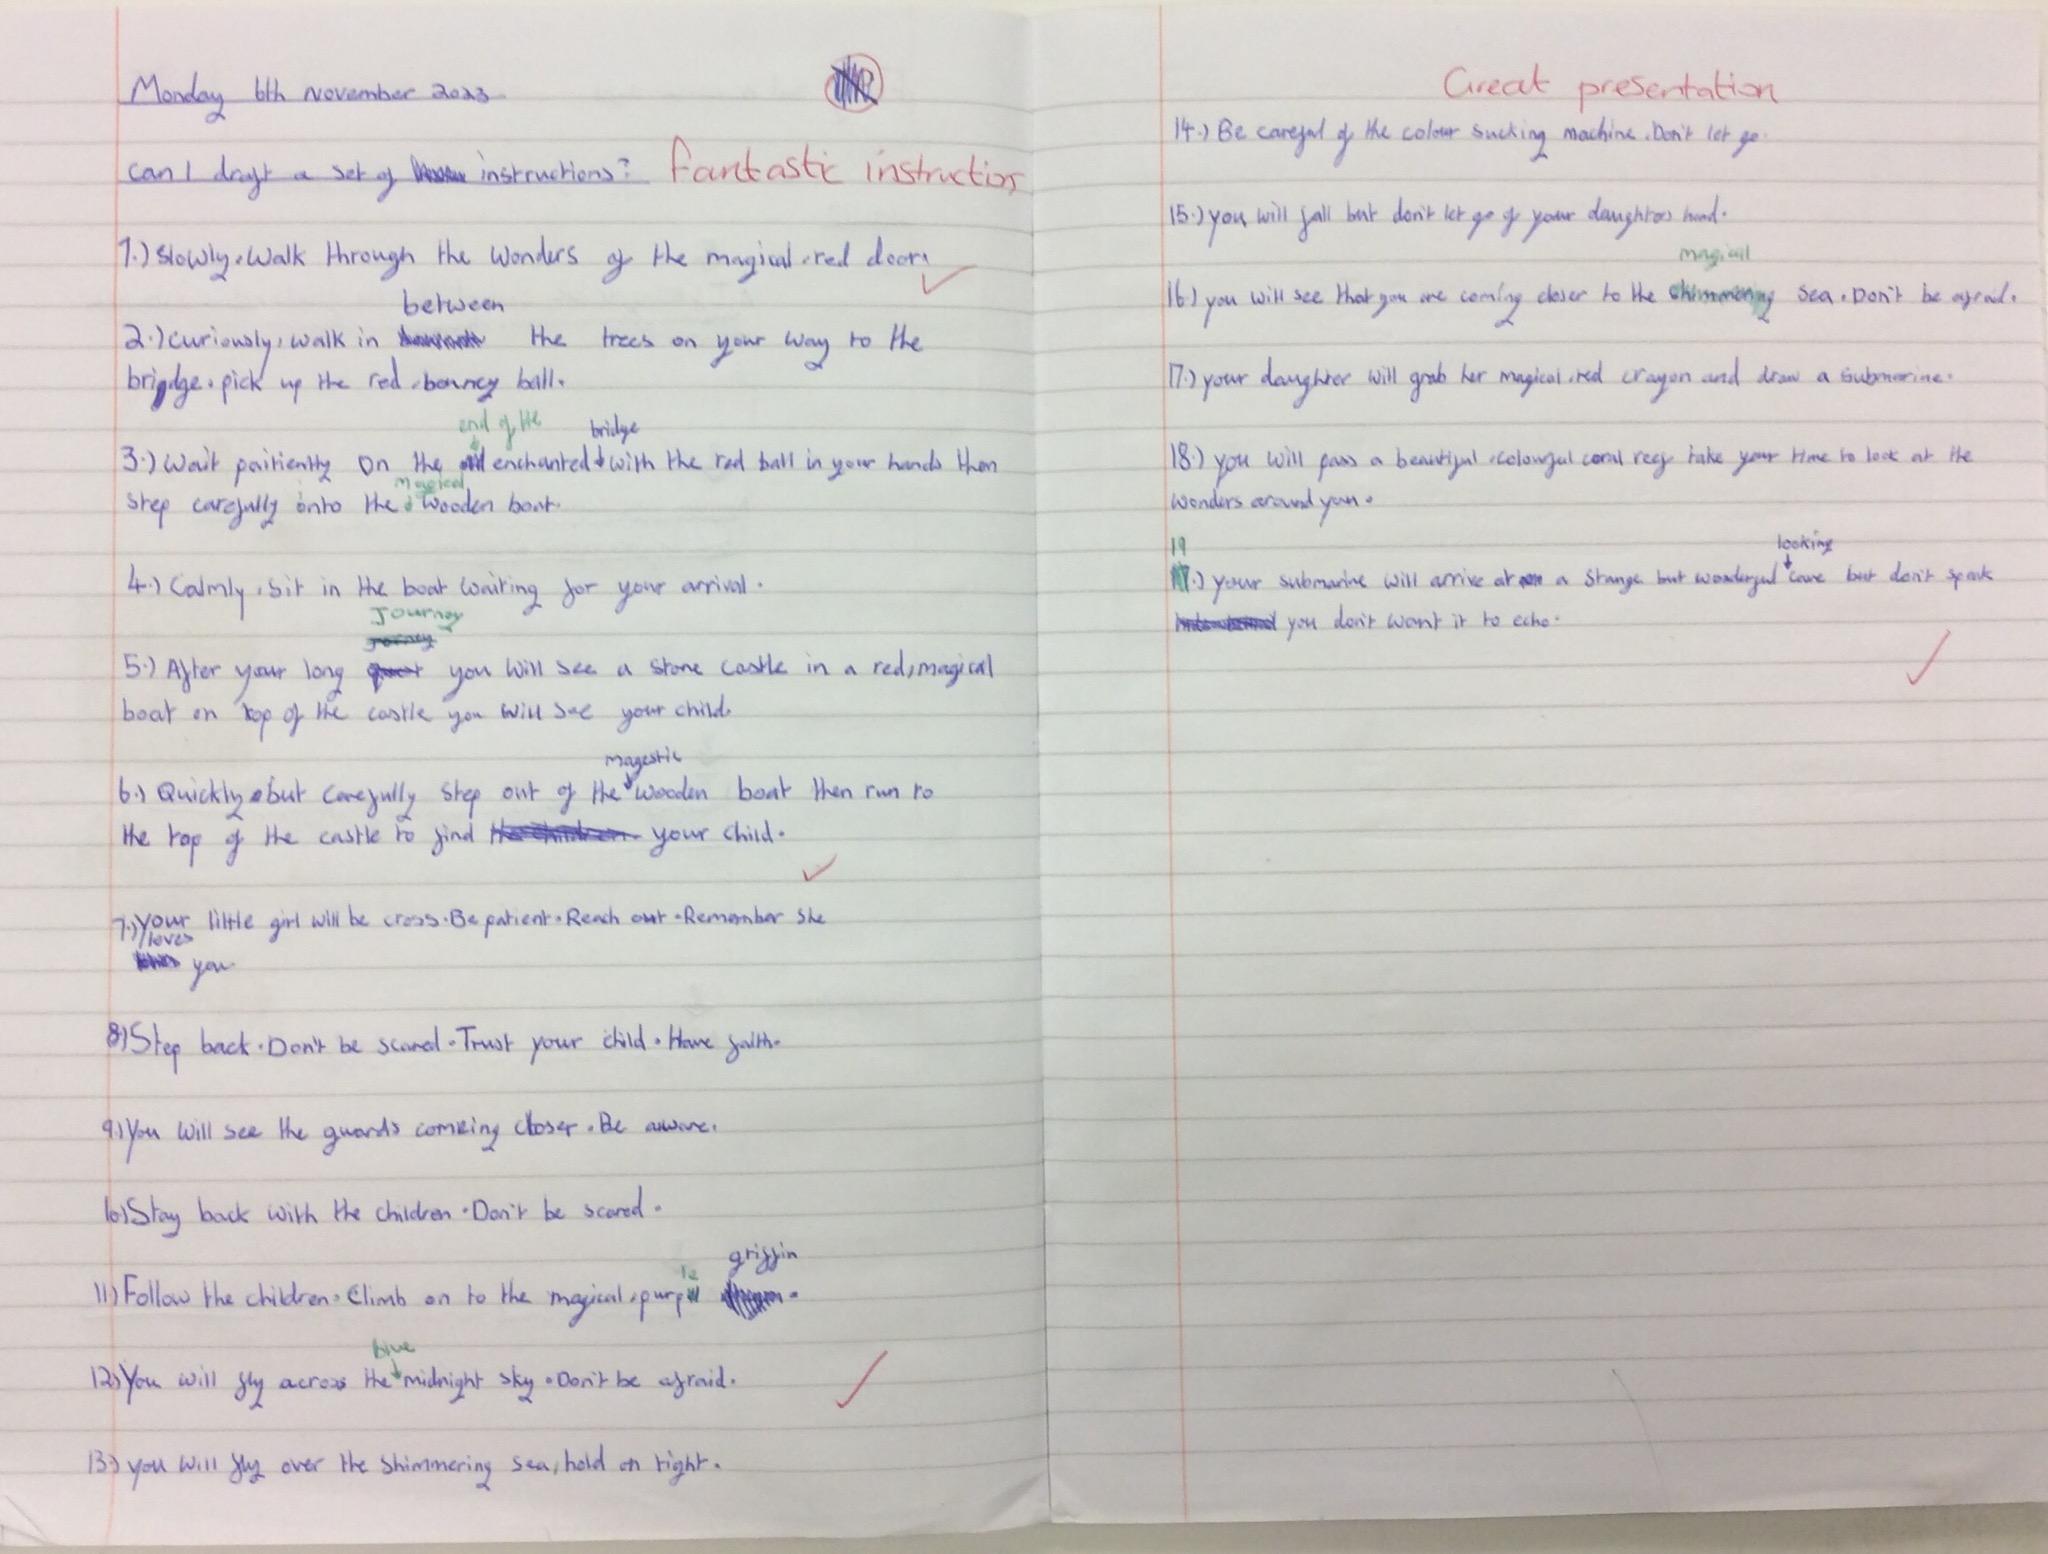 Monday 6th November 2023
can I draft a set of instructions? fantastic instructions
1.) Slowly, walk through the wonders of the magical, red door.
between
2.) curiously, walk in the trees on your way to the
bridge. pick up the red, bouncy ball.
end of the bridge
3.) Wait paitiently on the enchanted with the red ball in your hands then
magical
step carefully onto the, wooden boat.
4.) Calmly, sit in the boat waiting for your arrival.
Journey
Jorney
5.) After your long you will see a stone castle in a red, magical
boat on top of the castle you will see your child.
magestic
6.) Quickly but carefully step out of the wooden boat then run to
the top of the castle to find the children your child.
7.) your little girl will be cross. Be patient. Reach out. Remember she
loves
you.
8) Step back. Don't be scared. Trust your child. Have faith.
9.) You will see the guards comeing closer. Be aware.
10) Stay back with the children. Don't be scared.
griffin
le
11) Follow the children. Climb on to the magical, purp
blue
12) You will fly across the midnight sky. Don't be afraid.
13) you will fly over the shimmering sea, hold on tight.
Great presentation
14.) Be careful of the colour sucking machine. Don't let go.
15.) you will fall but don't let go of your daughters hand.
magicall
16.) you will see that you are coming closer to the shimmering sea. Don't be afraid.
17.) your daughter will grab her magical, red crayon and draw a submarine.
18.) you will pass a beautiful, colourful coral reef take your time to look at the
wonders around you.
19 looking
17.) your submarine will arrive at a stange but wonderful cave but don't speak
you don't want it to echo.